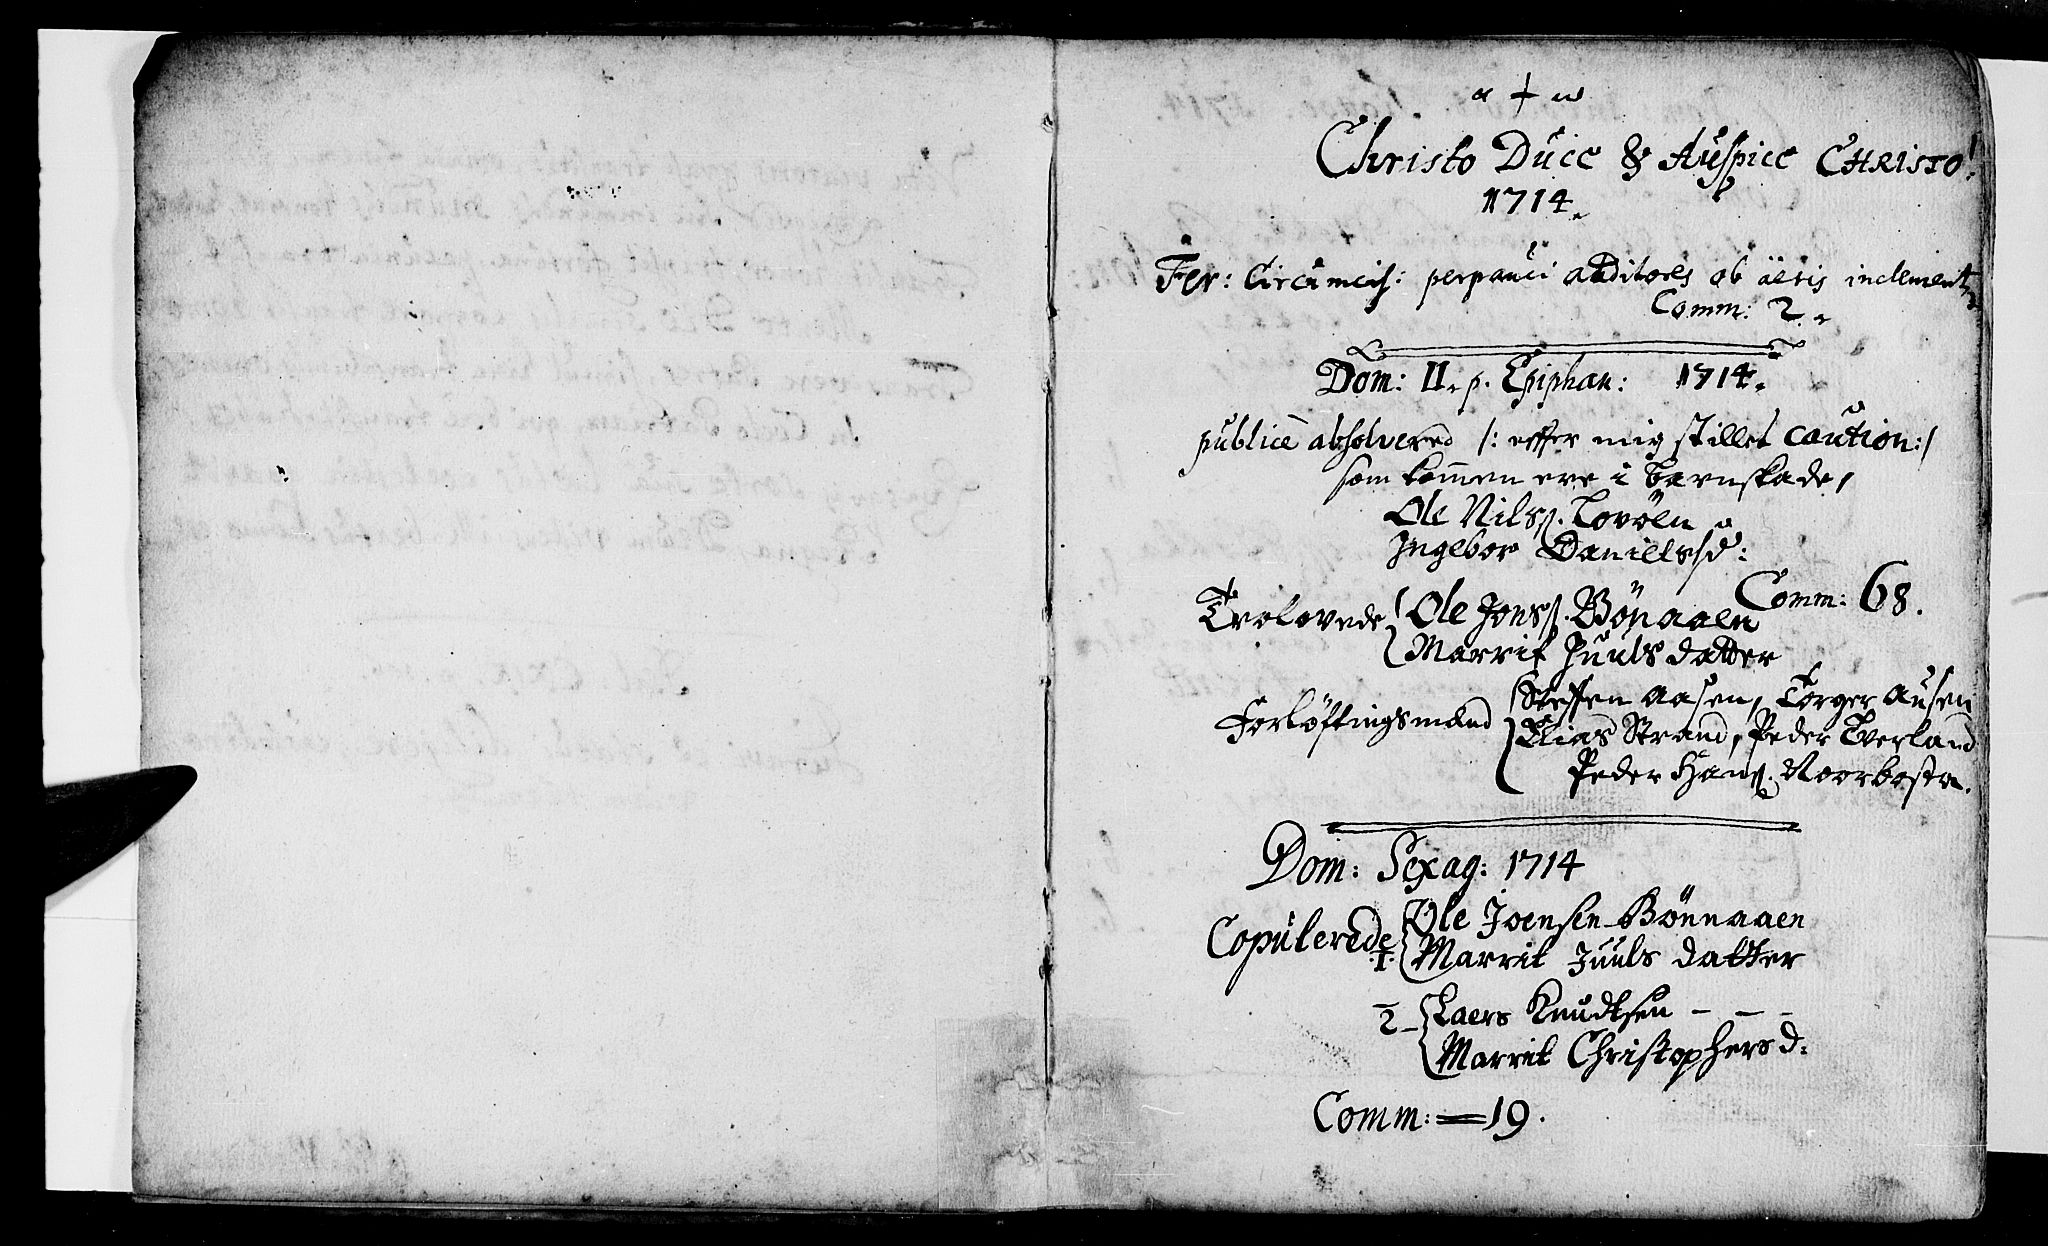 α † ω
Christo Duce & Auspice CHRISTO!
1714.
Fer: Circumcis: perpauci auditores ob aëris inclement:
Comm: 2.
Dom: II. p. Epiphan: 1714.
publicè absolvered /: effter mig stillet caution:/
som kommen ere i Barnskade,
Ole Nilss.
Ingebor Daniels d:
Comm: 68.
Trolovede Ole Jonss. Bönaaen
Marrit Juuls datter
Forlöftingsmænd Steffen Aasen, Torger Ausen
Elias Strand, Peder Tverland
Peder Hanss.
Dom: Sexag: 1714
Copulerede Ole Joensen Bönnaaen
1. Marrit Juuls datter
2 Laers Knudtsen - - -
Marrit Christophers d:
Comm: = 19.